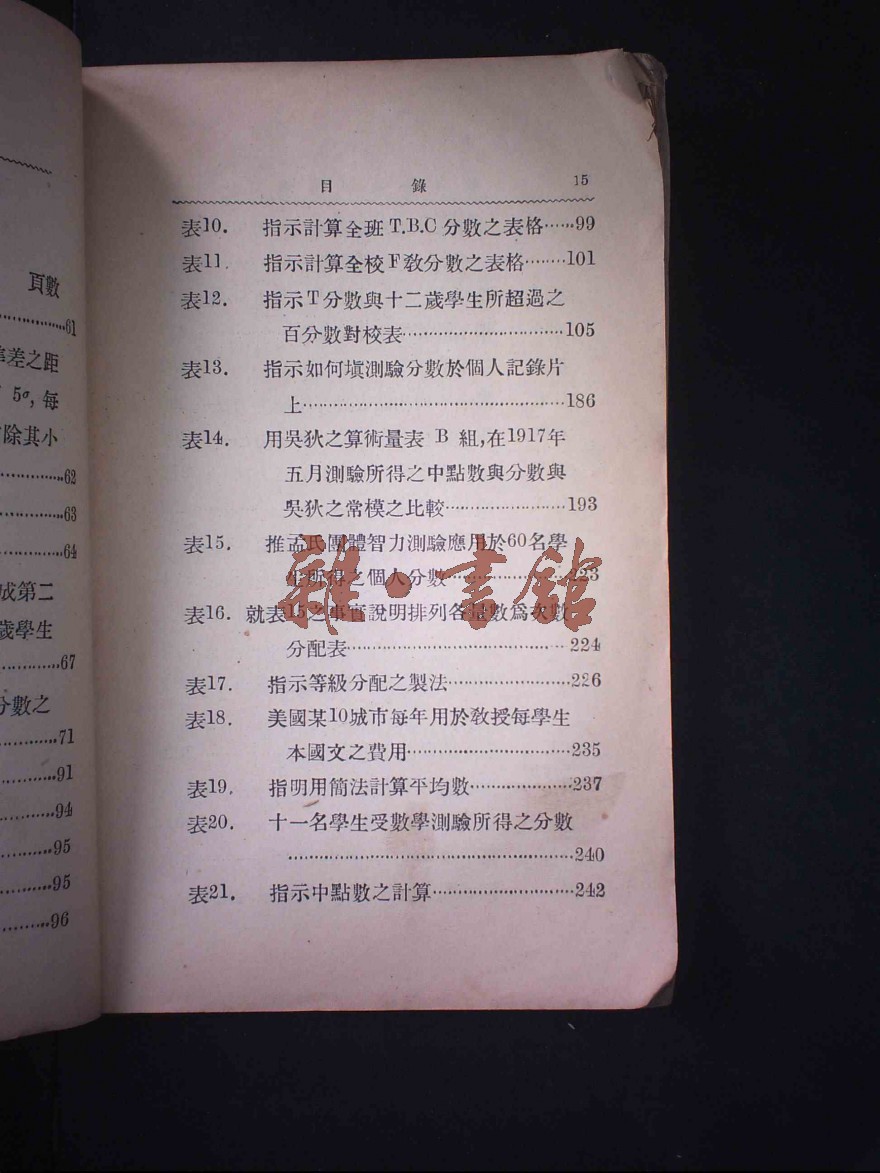 頁數
61
差之距
5σ, 每
除其小
62
63
64
成第二
歲學生
67
分數之
71
91
94
95
95
96
目錄 15
表10. 指示計算全班T.B.C分數之表格……99
表11. 指示計算全校F敎分數之表格……101
表12. 指示T分數與十二歲學生所超過之
百分數對校表……105
表13. 指示如何塡測驗分數於個人記錄片
上……186
表14. 用吳狄之算術量表 B 組,在1917年
五月測驗所得之中點數與分數與
吳狄之常模之比較……193
表15. 推孟氏團體智力測驗應用於60名學
生所得之個人分數……223
表16. 就表15之事實說明排列各量數爲次數
分配表……224
表17. 指示等級分配之製法……226
表18. 美國某10城市每年用於敎授每學生
本國文之費用……235
表19. 指明用簡法計算平均數……237
表20. 十一名學生受數學測驗所得之分數
……240
表21. 指示中點數之計算……242
雜·書館